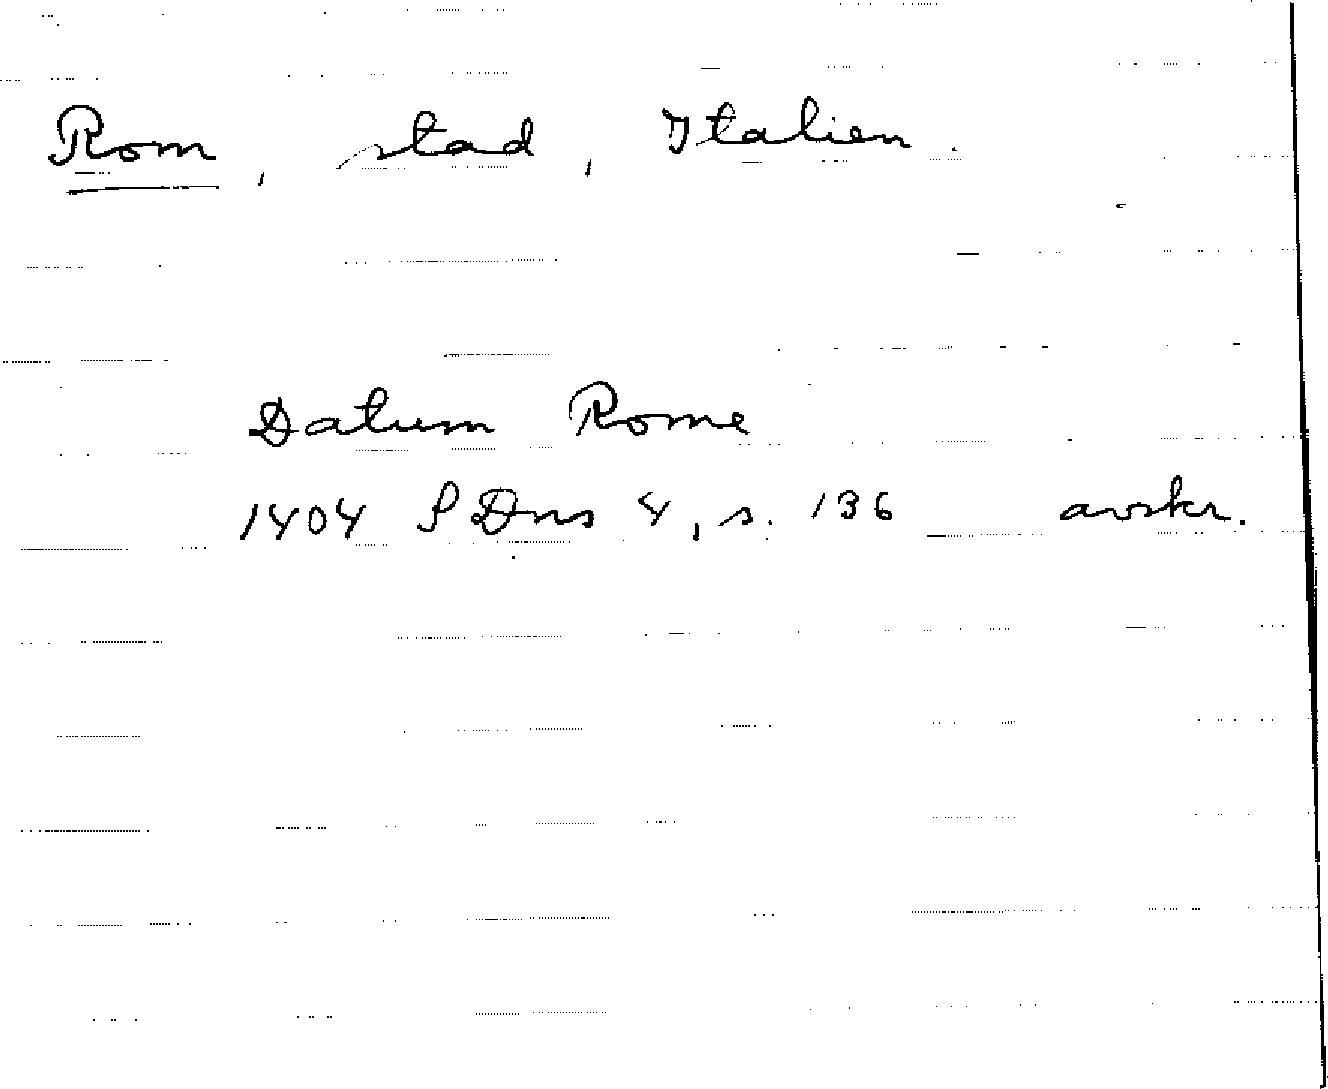 Rom, stad, Italien.
Datum Rome
1404 SDns 4, s. 136 avskr.